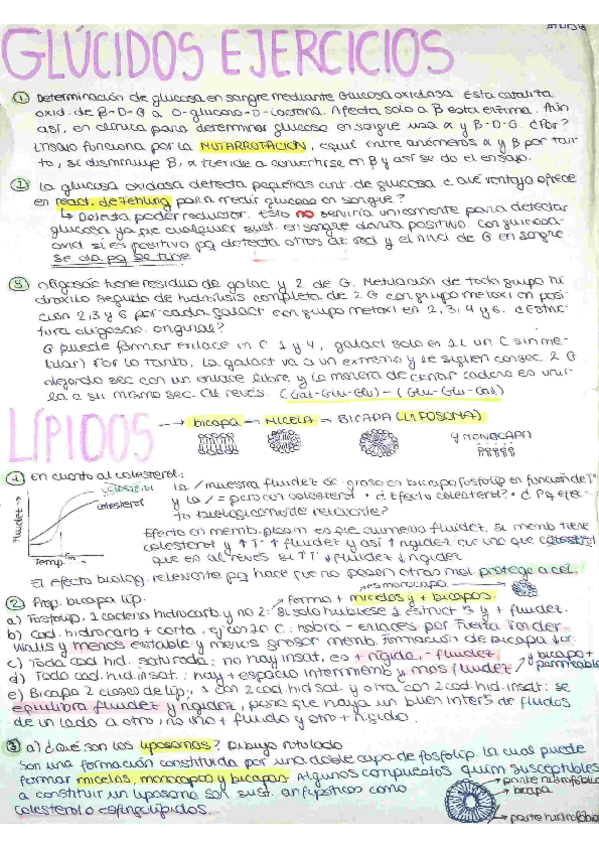 GLÚCIDOS EJERCICIOS
① Determinación de glucosa en sangre mediante Glucosa oxidasa. Esta cataliza
oxid. de β-D-G a D-glucono-D-lactona. Afecta solo a β esta enzima. Aún
así, en clínica para determinar glucosa en sangre usa α y β-D-G. ¿Por?
Ensayo funciona por la MUTARROTACIÓN, equil. entre anómeros α y β por tan-
to, si disminuye β, α tiende a convertirse en β y así se da el ensayo.
② La glucosa oxidasa detecta pequeñas cant. de glucosa ¿ qué ventaja ofrece
en react. de Fehling para medir glucosa en sangre?
↳ Detecta poder reductor. Esto no serviría únicamente para detectar
glucosa ya que cualquier sust. en sangre daría positivo. Con glucosa-
oxid sí es positivo pq detecta otros az red y el nivel de G en sangre
se da pq se tiñe.
③ Oligosác tiene residuo de galac y 2 de G. Metilación de todo grupo hi
droxilo seguido de hidrólisis completa de 2 G con grupo metoxi en posi-
ción 2,3 y 6 por cada galact con grupo metoxi en 2, 3, 4 y 6. ¿Estruc-
tura oligosác. original?
G puede formar enlace en C 1 y 4, galact solo en 1 (un C sin me-
tilar) Por lo tanto, la galact va a un extremo y le siguen consec. 2 G
dejando sec con un enlace libre, y la manera de cerrar cadena es unir-
la a su misma sec. al revés. (Gal-Glu-Glu) - (Glu-Glu-Gal)
LÍPIDOS
→ bicapa → MICELA → BICAPA (LIPOSOMA)
y MONOCAPA
① En cuanto al colesterol:
Fluidez ↑
colesterol
Temp.
La / muestra fluidez de grasa en bicapa fosfolíp en función de Tª
y la / = pero con colesterol • ¿Efecto colesterol? • ¿ Pq efec-
to biológicamente relevante?
Efecto en memb. plasm es que aumenta fluidez, si memb tiene
colesterol y ↑ Tª ↑ fluidez y así ↑ rigidez que una que
que es al revés si ↑ Tª ↓ fluidez ↓ rigidez
El efecto biológ. relevante pq hace que no pasen otras mol. protege a cél.
② Prop. bicapa líp.
→ forma + micelas y + bicapas.
a) Fosfolíp. 1 cadena hidrocarb. y no 2: Si solo hubiese 1 estruct y + fluidez.
b) Cad. hidrocarb + corta, ej con 10 C: habrá - enlaces por Fuerza Vander
Walls y menos estable y menos grosor memb. Formación de bicapa
c) Toda cad hid. saturada: no hay insat, es + rígida, - fluidez
d) Todo cad. hid. insat.: hay + espacio intermemb y más fluidez
bicapa +
permeable
e) Bicapa 2 clases de líp; 1 con 2 cad hid sat. y otra con 2 cad. hid. insat: se
equilibra fluidez y rigidez, para que haya un buen interc de fluidos
de un lado a otro, no uno + fluido y otro + rígido.
③ a) ¿Qué son los liposomas? Dibujo rotulado
Son una formación constituida por una doble capa de fosfolíp. la cual puede
formar micelas, monocapas y bicapas. Algunos compuestos quím susceptibles
a constituir un liposoma son sust. anfipáticas como
colesterol o esfingolípidos.
parte hidrofóbica
bicapa
parte hidrofílica